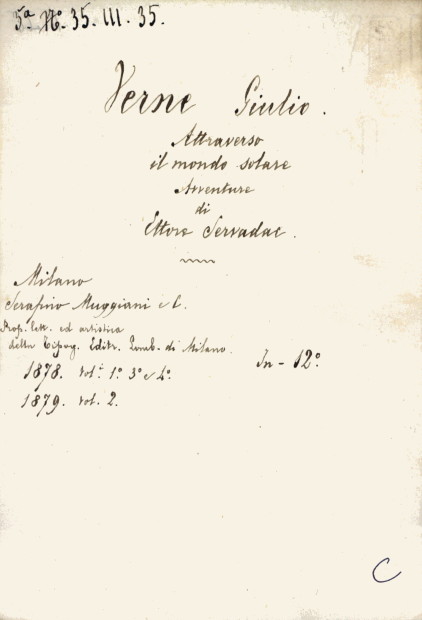 5ª Nº. 35. III. 35.
Verne Giulio.
Attraverso
il mondo solare
Avventure
di
Ettore Servadac.
Milano
Serafino Muggiani e C.
Prop. lett. ed artistica
della Tipog. Editr. Lomb. di Milano.
1878. vol.ⁱ 1º. 3º e 4º. In - 12º.
1879. vol. 2.
C